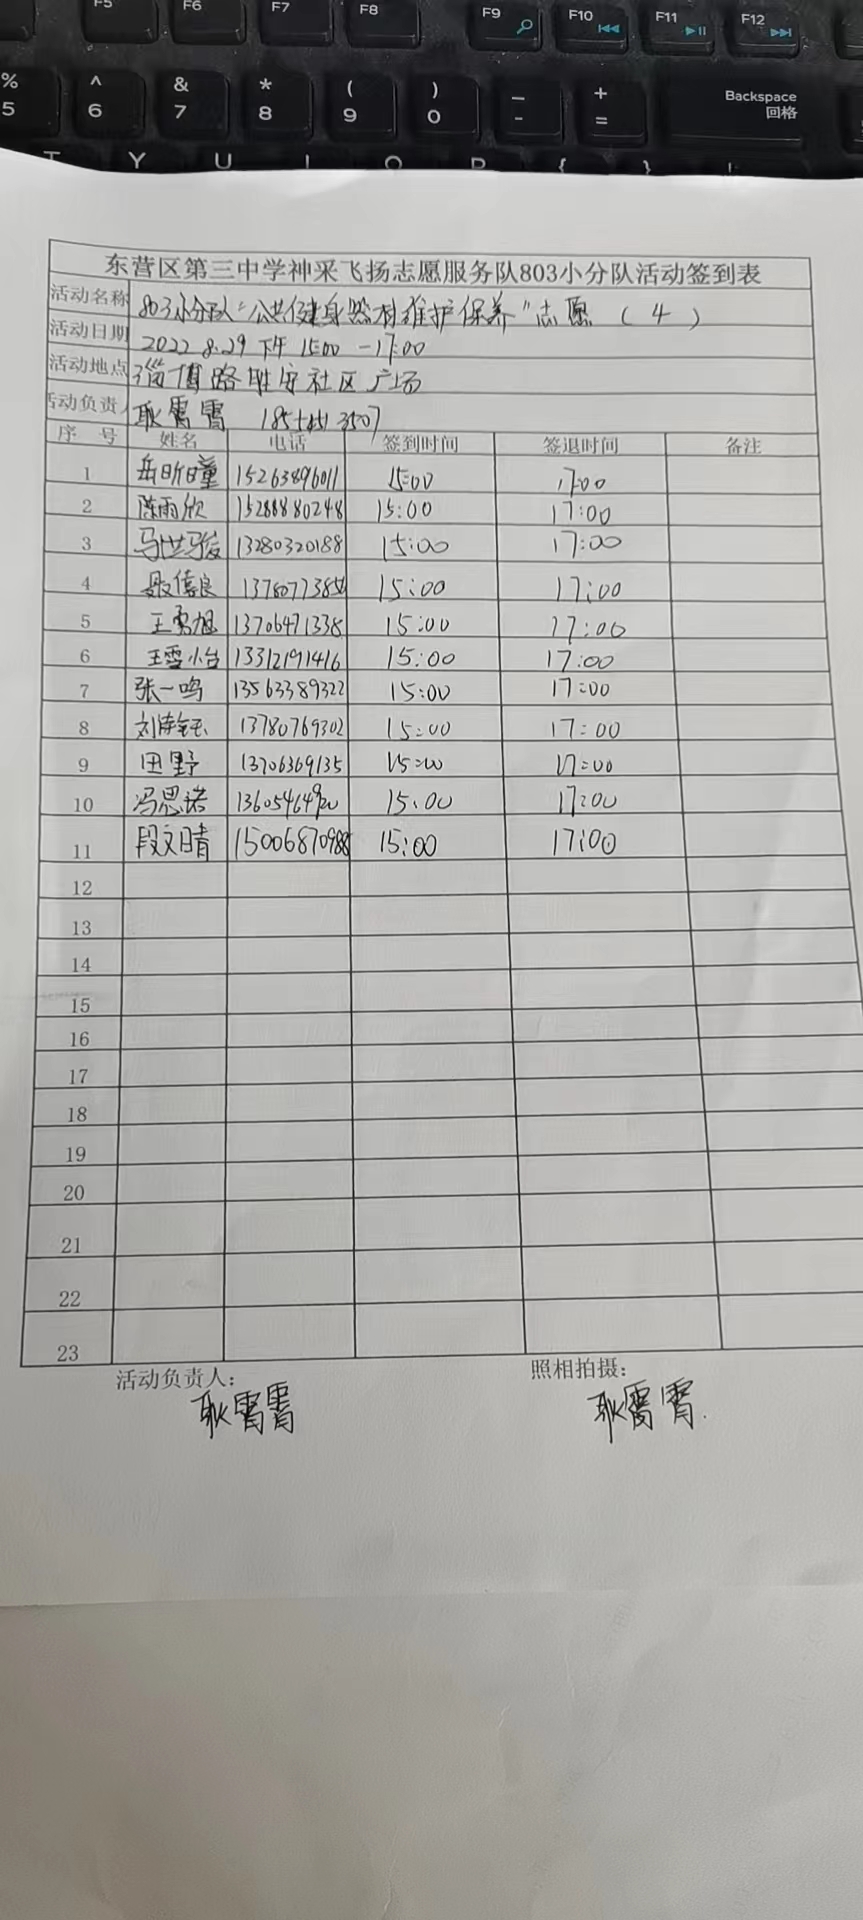 F5 F6 F7 F8 F9 F10 F11 F12
% 5 ^ 6 & 7 * 8 ( 9 ) 0 — - + = Backspace 回格
T Y U I O P { }
东营区第三中学神采飞扬志愿服务队803小分队活动签到表
活动名称 803小分队"公共健身器材维护保养"志愿(4)
活动日期 2022 8.29 下午 15:00 -17:00
活动地点 淄博路胜安社区广场
活动负责人 耿霄霄
序号 姓名 电话 签到时间 签退时间 备注
1 岳昕曈 15263896011 15:00 17:00
2 陈雨欣 15288880248 15:00 17:00
3 马世骏 13280320188 15:00 17:00
4 13780773854 15:00 17:00
5 王勇旭 13706471338 15:00 17:00
6 王雪怡 13312191416 15:00 17:00
7 张一鸣 13563389322 15:00 17:00
8 13780769302 15:00 17:00
9 田野 13706369135 15:00 17:00
10 冯思诺 15:00 17:00
11 段文晴 15006870988 15:00 17:00
12
13
14
15
16
17
18
19
20
21
22
23
活动负责人: 照相拍摄:
耿霄霄 耿霄霄.